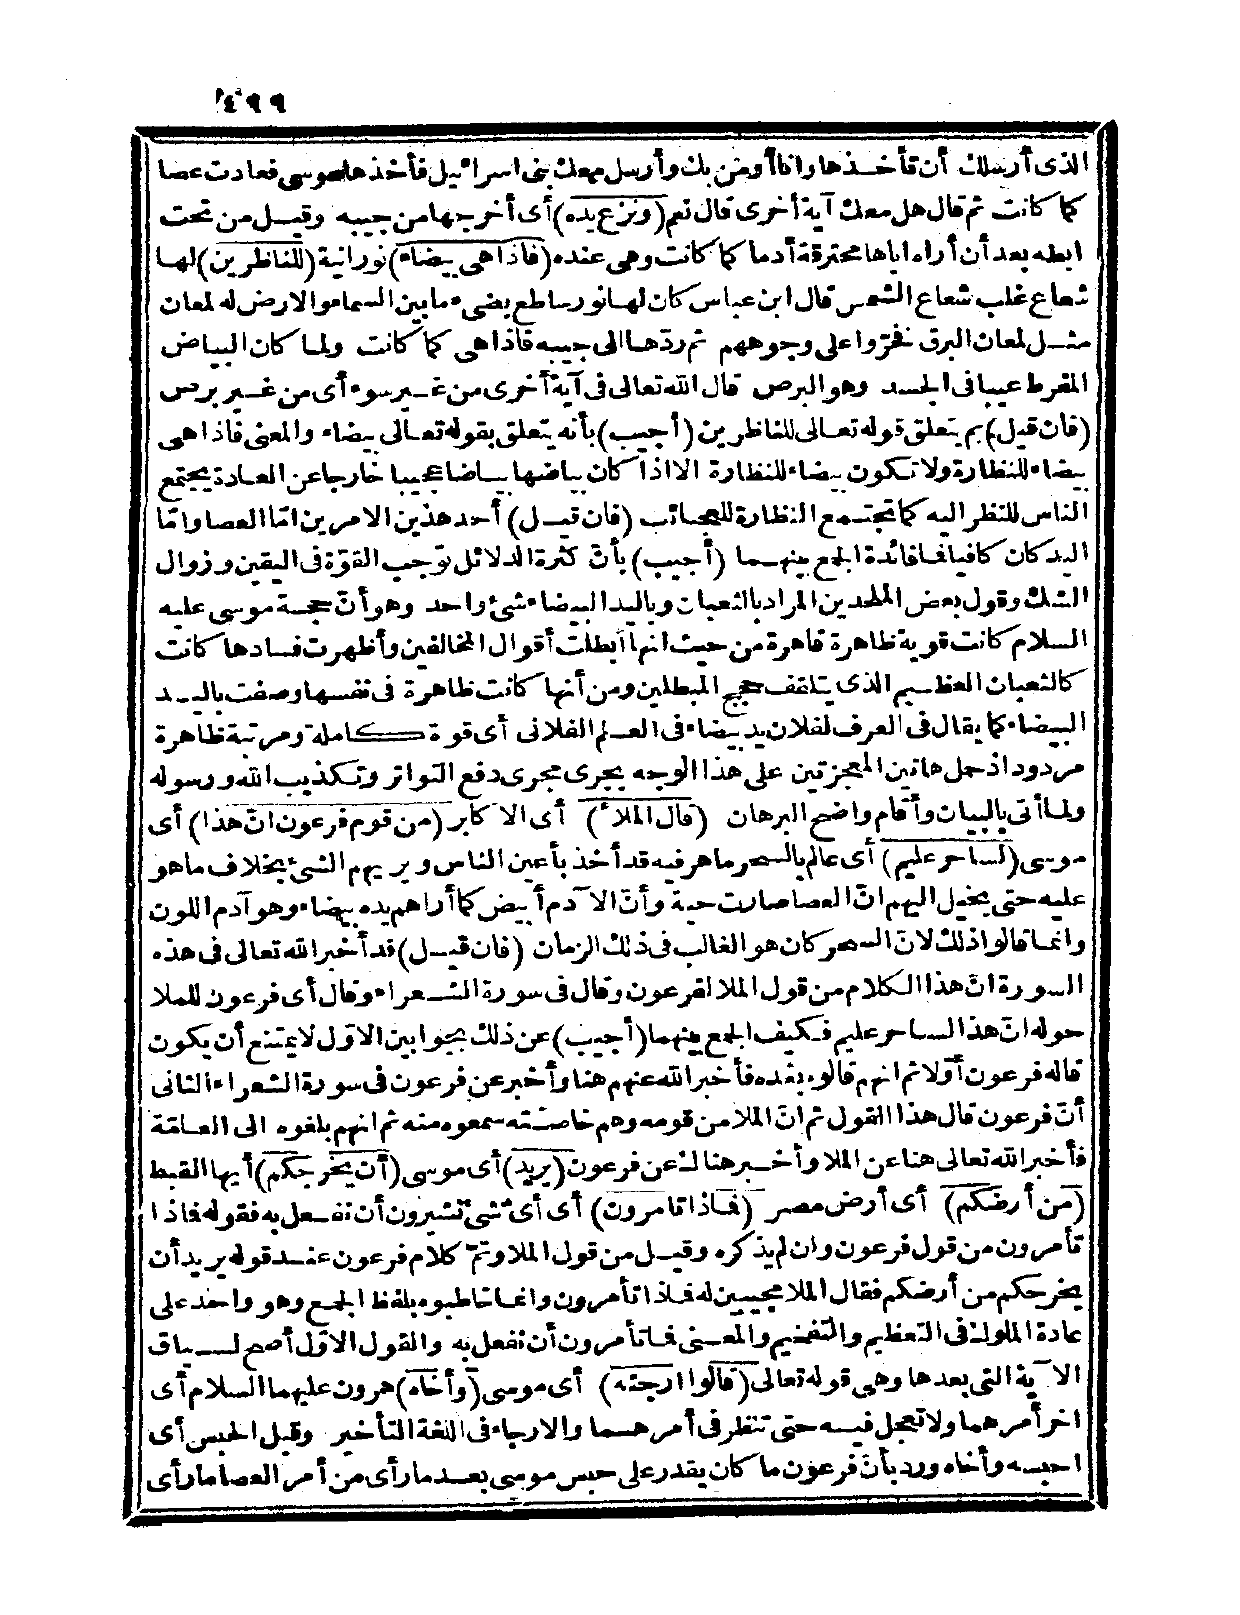 ٤٩٩
الذى أرسلك أن تأخذها وأنا أومن بك وأرسل معك بنى اسرائيل فأخذها موسى فعادت عصا
كما كانت ثم قال هل معك آية أخرى قال نعم (ونزع يده) أى أخرجها من جيبه وقيل من تحت
ابطه بعد أن أراه اياها محترقة أدما كما كانت وهى عنده (فاذا هى بيضاء) نورانية (للناظرين) لها
شعاع غلب شعاع الشمس قال ابن عباس كان لها نور ساطع يضىء ما بين السما والارض له لمعان
مثل لمعان البرق فخرّوا على وجوههم ثم ردّها الى جيبه فاذا هى كما كانت ولما كان البياض
المفرط عيبا فى الجسد وهو البرص قال الله تعالى فى آية أخرى من غير سوء أى من غير برص
(فان قيل) بم يتعلق قوله تعالى للناظرين (أجيب) بأنه يتعلق بقوله تعالى بيضاء والمعنى فاذا هى
بيضاء للنظارة ولا تكون بيضاء للنظارة الا اذا كان بياضها بياضا عجيبا خارجا عن العادة يجتمع
الناس للنظر اليه كما تجتمع النظارة للعجائب (فان قيل) أحد هذين الامرين امّا العصا وامّا
اليد كان كافيا فما فائدة الجمع بينهما (أجيب) بأنّ كثرة الدلائل توجب القوّة فى اليقين وزوال
الشك وقول بعض الملحدين المراد بالثعبان وباليد البيضاء شئ واحد وهو أنّ حجة موسى عليه
السلام كانت قوية ظاهرة قاهرة من حيث انها أبطلت أقوال المخالفين وأظهرت فسادها كانت
كالثعبان العظيم الذى يتلقف حجج المبطلين ومن أنها كانت ظاهرة فى نفسها وصفت باليد
البيضاء كما يقال فى العرف لفلان يد بيضاء فى العلم الفلانى أى قوة كاملة ومرتبة ظاهرة
مردود اذ حمل هاتين المعجزتين على هذا الوجه يجرى مجرى دفع التواتر وتكذيب الله ورسوله
ولما أتى بالبيان وأقام واضح البرهان (قال الملأ) أى الاكابر (من قوم فرعون انّ هذا) أى
موسى (لساحر عليم) أى عالم بالسحر ماهر فيه قد أخذ بأعين الناس ويريهم الشئ بخلاف ما هو
عليه حتى يخيل اليهم انّ العصا صارت حية وأنّ الآدم أبيض كما أراهم يده بيضاء وهو آدم اللون
وانما قالوا ذلك لانّ السحر كان هو الغالب فى ذلك الزمان (فان قيل) قد أخبر الله تعالى فى هذه
السورة انّ هذا الكلام من قول الملا لفرعون وقال فى سورة الشعراء وقال أى فرعون للملا
حوله انّ هذا الساحر عليم فكيف الجمع بينهما (أجيب) عن ذلك بجوابين الاوّل لا يمتنع أن يكون
قاله فرعون أوّلا ثم انهم قالوه بعده فأخبر الله عنهم هنا وأخبر عن فرعون فى سورة الشعراء الثانى
أنّ فرعون قال هذا القول ثم انّ الملا من قومه وهم خاصته سمعوه منه ثم انهم بلغوه الى العامّة
فأخبر الله تعالى هنا عن الملا وأخبر هنالك عن فرعون (يريد) أى موسى (أن يخرجكم) أيها القبط
(من أرضكم) أى أرض مصر (فماذا تأمرون) أى أىّ شئ تشيرون أن نفعل به فقوله فماذا
تأمرون من قول فرعون وان لم يذكره وقيل من قول الملا وتمّ كلام فرعون عند قوله يريد أن
يخرجكم من أرضكم فقال الملا مجيبين له فماذا تأمرون وانما خاطبوه بلفظ الجمع وهو واحد على
عادة الملوك فى التعظيم والتفخيم والمعنى فما تأمرون أن نفعل به والقول الاوّل أصح لسياق
الآية التى بعدها وهى قوله تعالى (قالوا ارجئه) أى موسى (وأخاه) هرون عليهما السلام أى
اخر أمرهما ولا تعجل فيه حتى تنظر فى أمرهما والارجاء فى اللغة التأخير وقيل الحبس أى
احبسه وأخاه وردّ بأنّ فرعون ما كان يقدر على حبس موسى بعد ما رأى من أمر العصا ما رأى